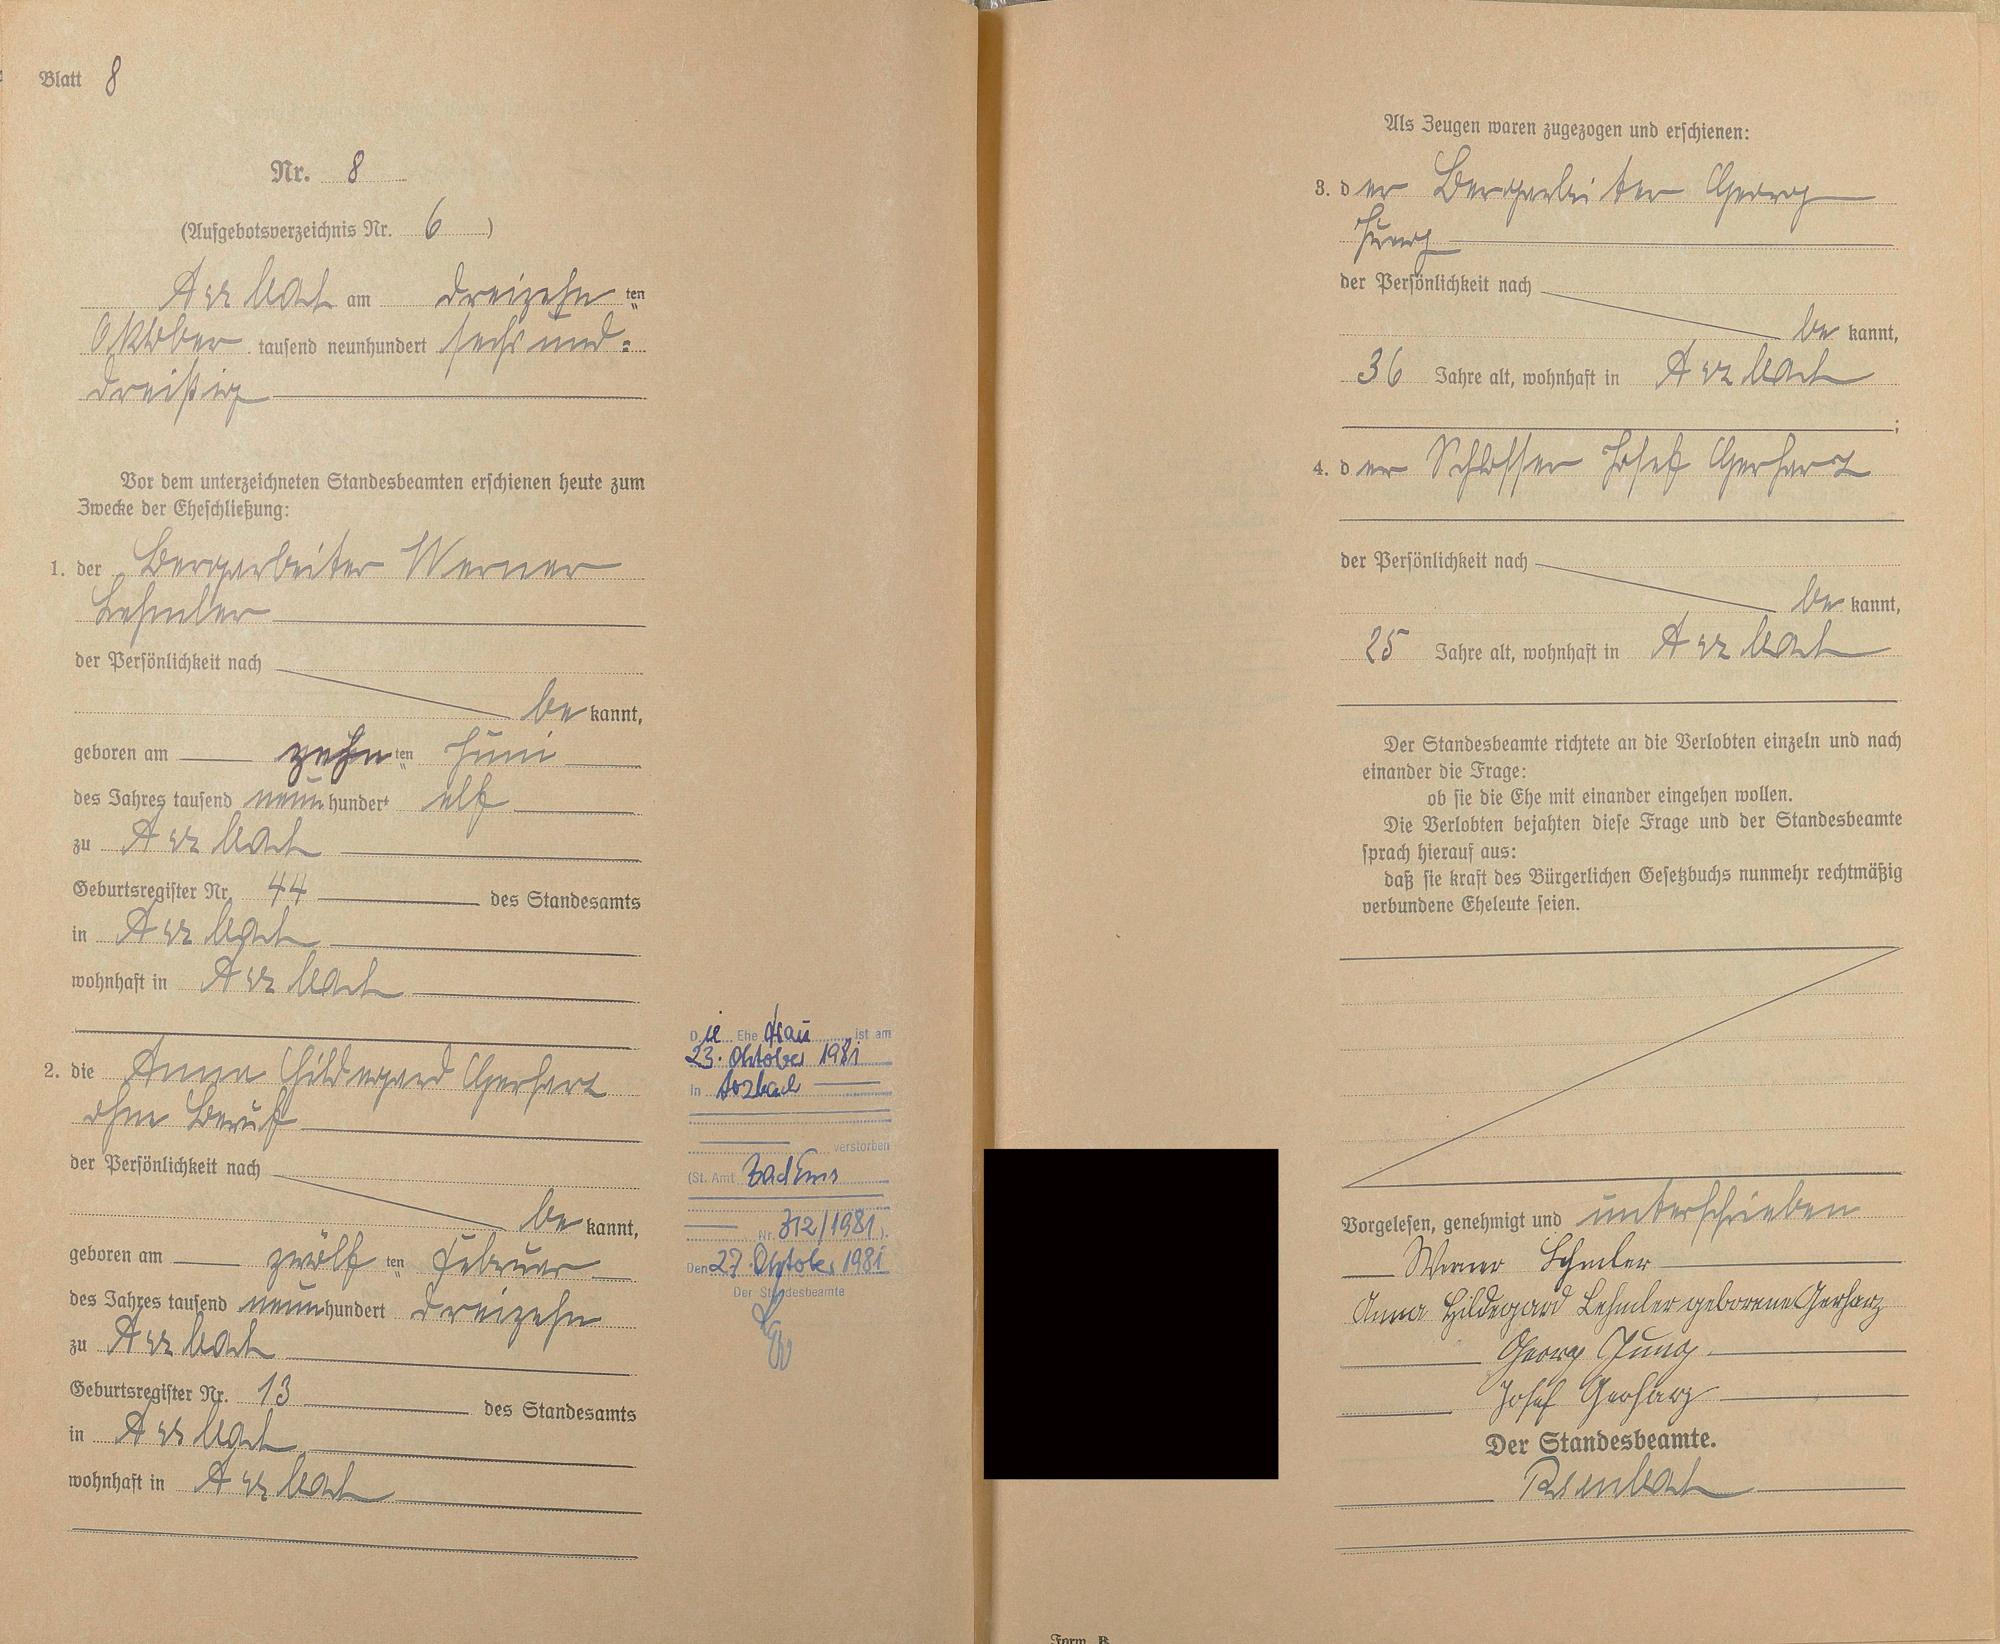 Blatt 8
Nr. 8
(Aufgebotsverzeichnis Nr. 6)
Arzbach am dreizehn ten
Oktober tausend neunhundert sechsund=
dreißig
Vor dem unterzeichneten Standesbeamten erschienen heute zum
Zwecke der Eheschließung:
1. der Bergarbeiter Werner
Lehmler
der Persönlichkeit nach
be kannt,
geboren am zehn ten Juni
des Jahres tausend neun hundert elf
zu Arzbach
Geburtsregister Nr. 44 des Standesamts
in Arzbach
wohnhaft in Arzbach
2. die Anna Hildegard Gerharz
ohne Beruf
der Persönlichkeit nach
be kannt,
geboren am zwölf ten Februar
des Jahres tausend neun hundert dreizehn
zu Arzbach
Geburtsregister Nr. 13 des Standesamts
in Arzbach
wohnhaft in Arzbach
Die Ehefrau ist am
23. Oktober 1981
in Arzbach
verstorben
(St. Amt Bad Ems
Nr. 312/1981).
Den 27. Oktober 1981
Der Standesbeamte
Als Zeugen waren zugezogen und erschienen:
3. der Bergarbeiter Georg
Jung
der Persönlichkeit nach
be kannt,
36 Jahre alt, wohnhaft in Arzbach
;
4. der Schlosser Josef Gerharz
der Persönlichkeit nach
be kannt,
25 Jahre alt, wohnhaft in Arzbach
Der Standesbeamte richtete an die Verlobten einzeln und nach
einander die Frage:
ob sie die Ehe mit einander eingehen wollen.
Die Verlobten bejahten diese Frage und der Standesbeamte
sprach hierauf aus:
daß sie kraft des Bürgerlichen Gesetzbuchs nunmehr rechtmäßig
verbundene Eheleute seien.
Vorgelesen, genehmigt und unterschrieben
Werner Lehmler
Anna Hildegard Lehmler geborene Gerharz
Georg Jung
Josef Gerharz
Der Standesbeamte.
Form. B.